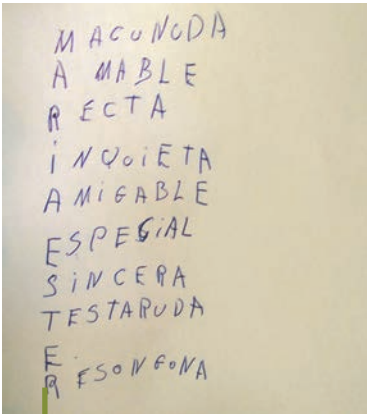 MACUNUDA
AMABLE
RECTA
iNQUiETA
AMiGABLE
ESPECiAL
SiNCERA
TESTARUDA
E.
RESONGONA